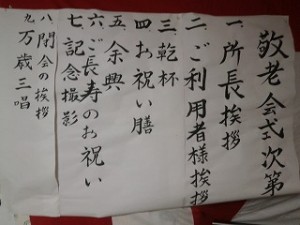 敬老会式次第
一、所長挨拶
二、ご利用者様挨拶
三、乾杯
四、お祝い膳
五、余興
六、ご長寿のお祝い
七、記念撮影
八、閉会の挨拶
九、万歳三唱